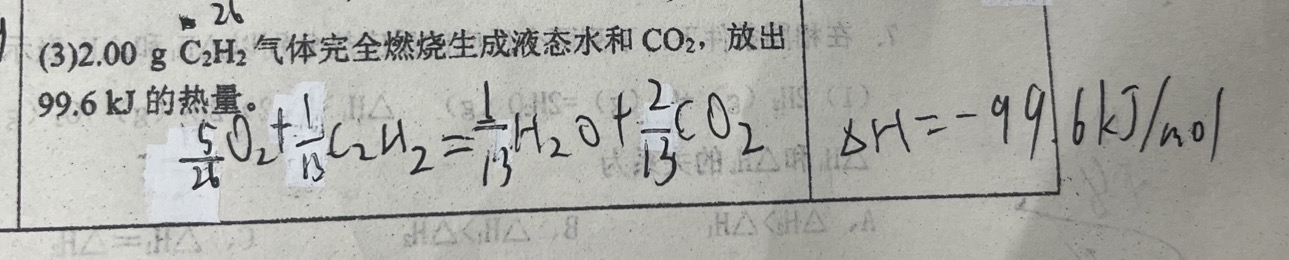 26
(3)2.00 g C₂H₂ 气体完全燃烧生成液态水和 CO₂，放出
99.6 kJ 的热量。
5/26 O₂ + 1/13 C₂H₂ = 1/13 H₂O + 2/13 CO₂ △H = -99.6kJ/mol